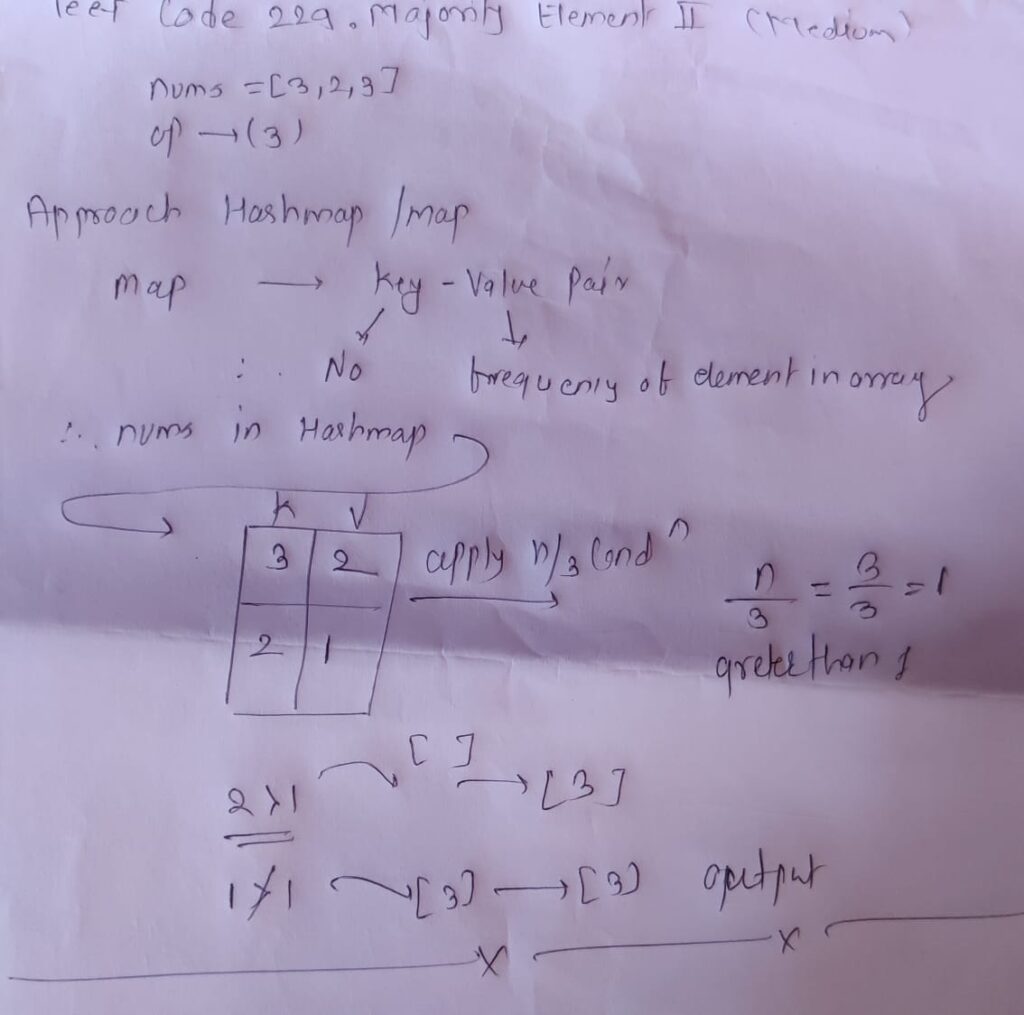 Leet Code 229. Majority Element II (Medium)
nums = [3,2,3]
op → (3)
Approach Hashmap / map
map → key - Value Pair
∴ No frequency of element in array
∴ nums in Hashmap
K V
3 2 apply n/3 Condⁿ n/3 = 3/3 = 1
2 1 greter than 1
[ ] → [3]
2 > 1
1 ≯ 1 [3] → [3] output